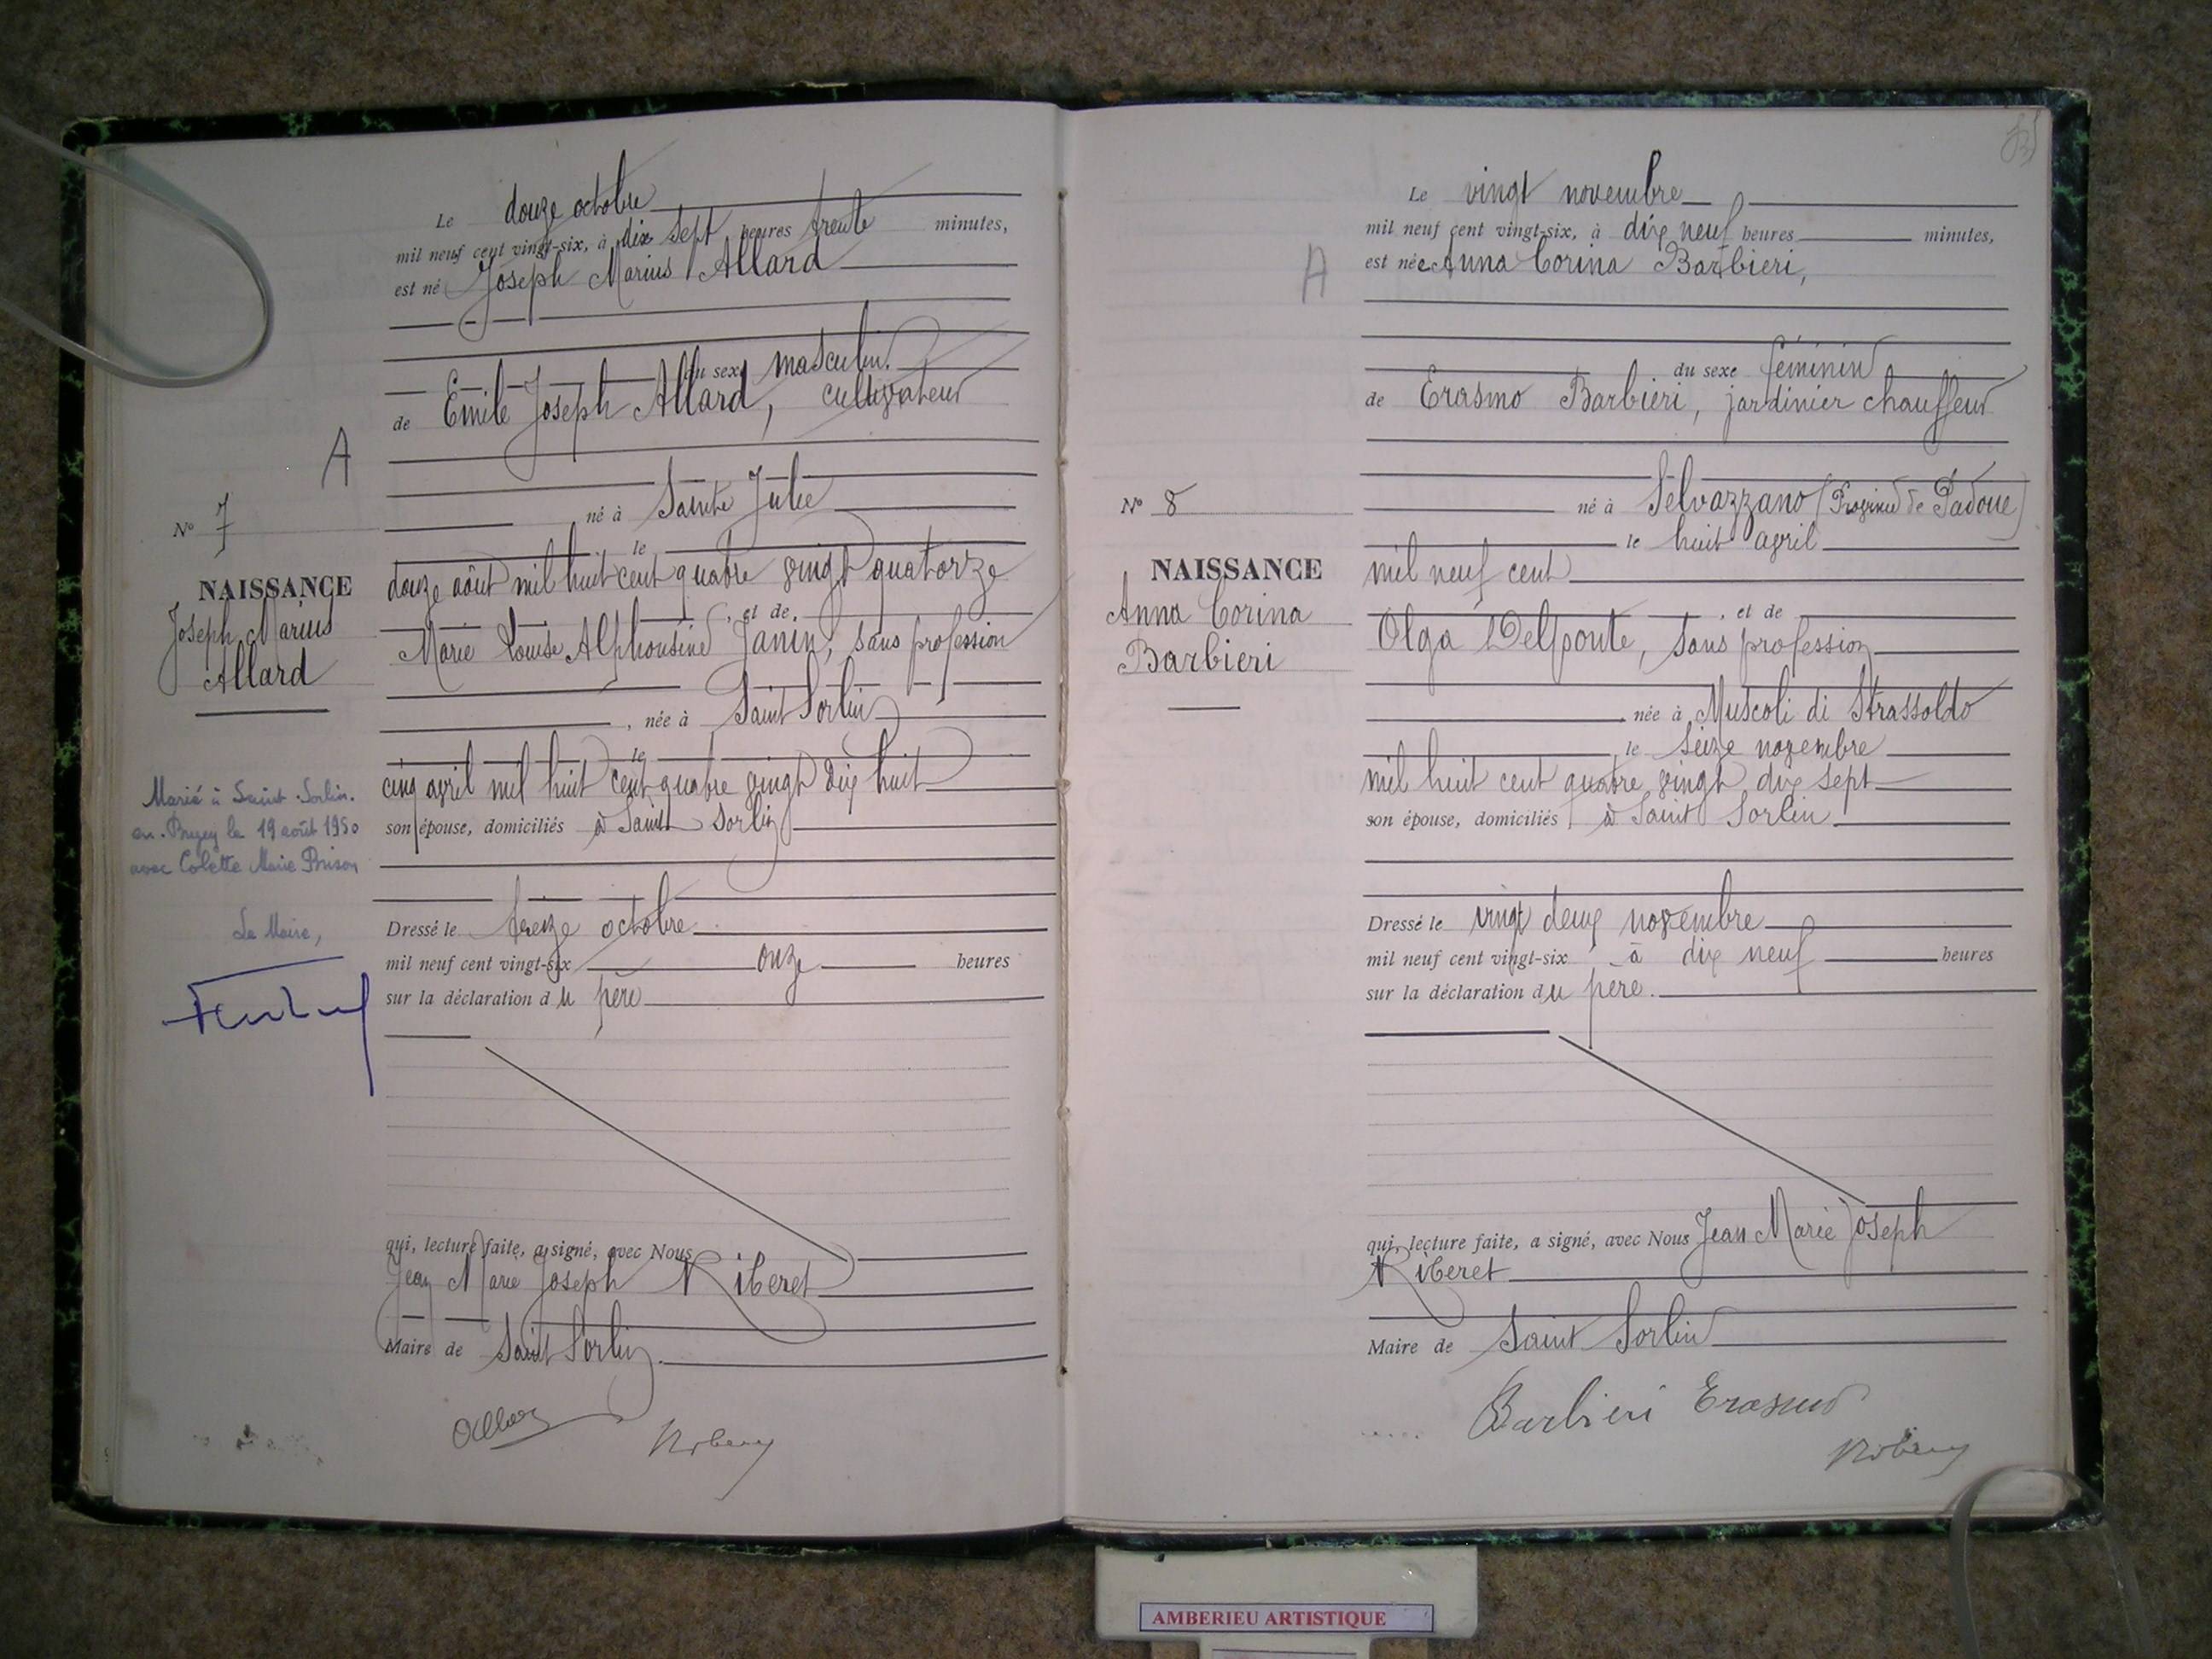 Le douze octobre
mil neuf cent vingt-six, à dix sept heures trente minutes,
est né Joseph Marius Allard
du sexe masculin.
de Emile Joseph Allard, cultivateur
A
né à Sainte Julie
N° 7
le
NAISSANCE
Joseph Marius
Allard
douze août mil huit cent quatre vingt quatorze
, et de
Marie Louise Alphonsine Janin, sans profession
, née à Saint Sorlin
le
cinq avril mil huit cent quatre vingt dix huit
son épouse, domiciliés à Saint Sorlin
Marié à Saint-Sorlin.
en-Bugey le 19 août 1950
avec Colette Marie
Le Maire,
Dressé le treize octobre
mil neuf cent vingt-six onze heures
sur la déclaration du père
qui, lecture faite, a signé, avec Nous
Jean Marie Joseph Riberet
Maire de Saint Sorlin.
Le vingt novembre
mil neuf cent vingt-six, à dix neuf heures minutes,
A
est née Anna Corina Barbieri,
du sexe féminin
de Erasmo Barbieri, jardinier chauffeur
né à Selvazzano (Province de Padoue)
N° 8
le huit avril
NAISSANCE
Anna Corina
Barbieri
mil neuf cent
, et de
Olga Delponte, sans profession
, née à Muscoli di Strassoldo
le seize novembre
mil huit cent quatre vingt dix sept
son épouse, domiciliés à Saint Sorlin
Dressé le vingt deux novembre
mil neuf cent vingt-six à dix neuf heures
sur la déclaration du père.
qui, lecture faite, a signé, avec Nous Jean Marie Joseph
Riberet
Maire de Saint Sorlin
Barbieri Erasmo
AMBERIEU ARTISTIQUE